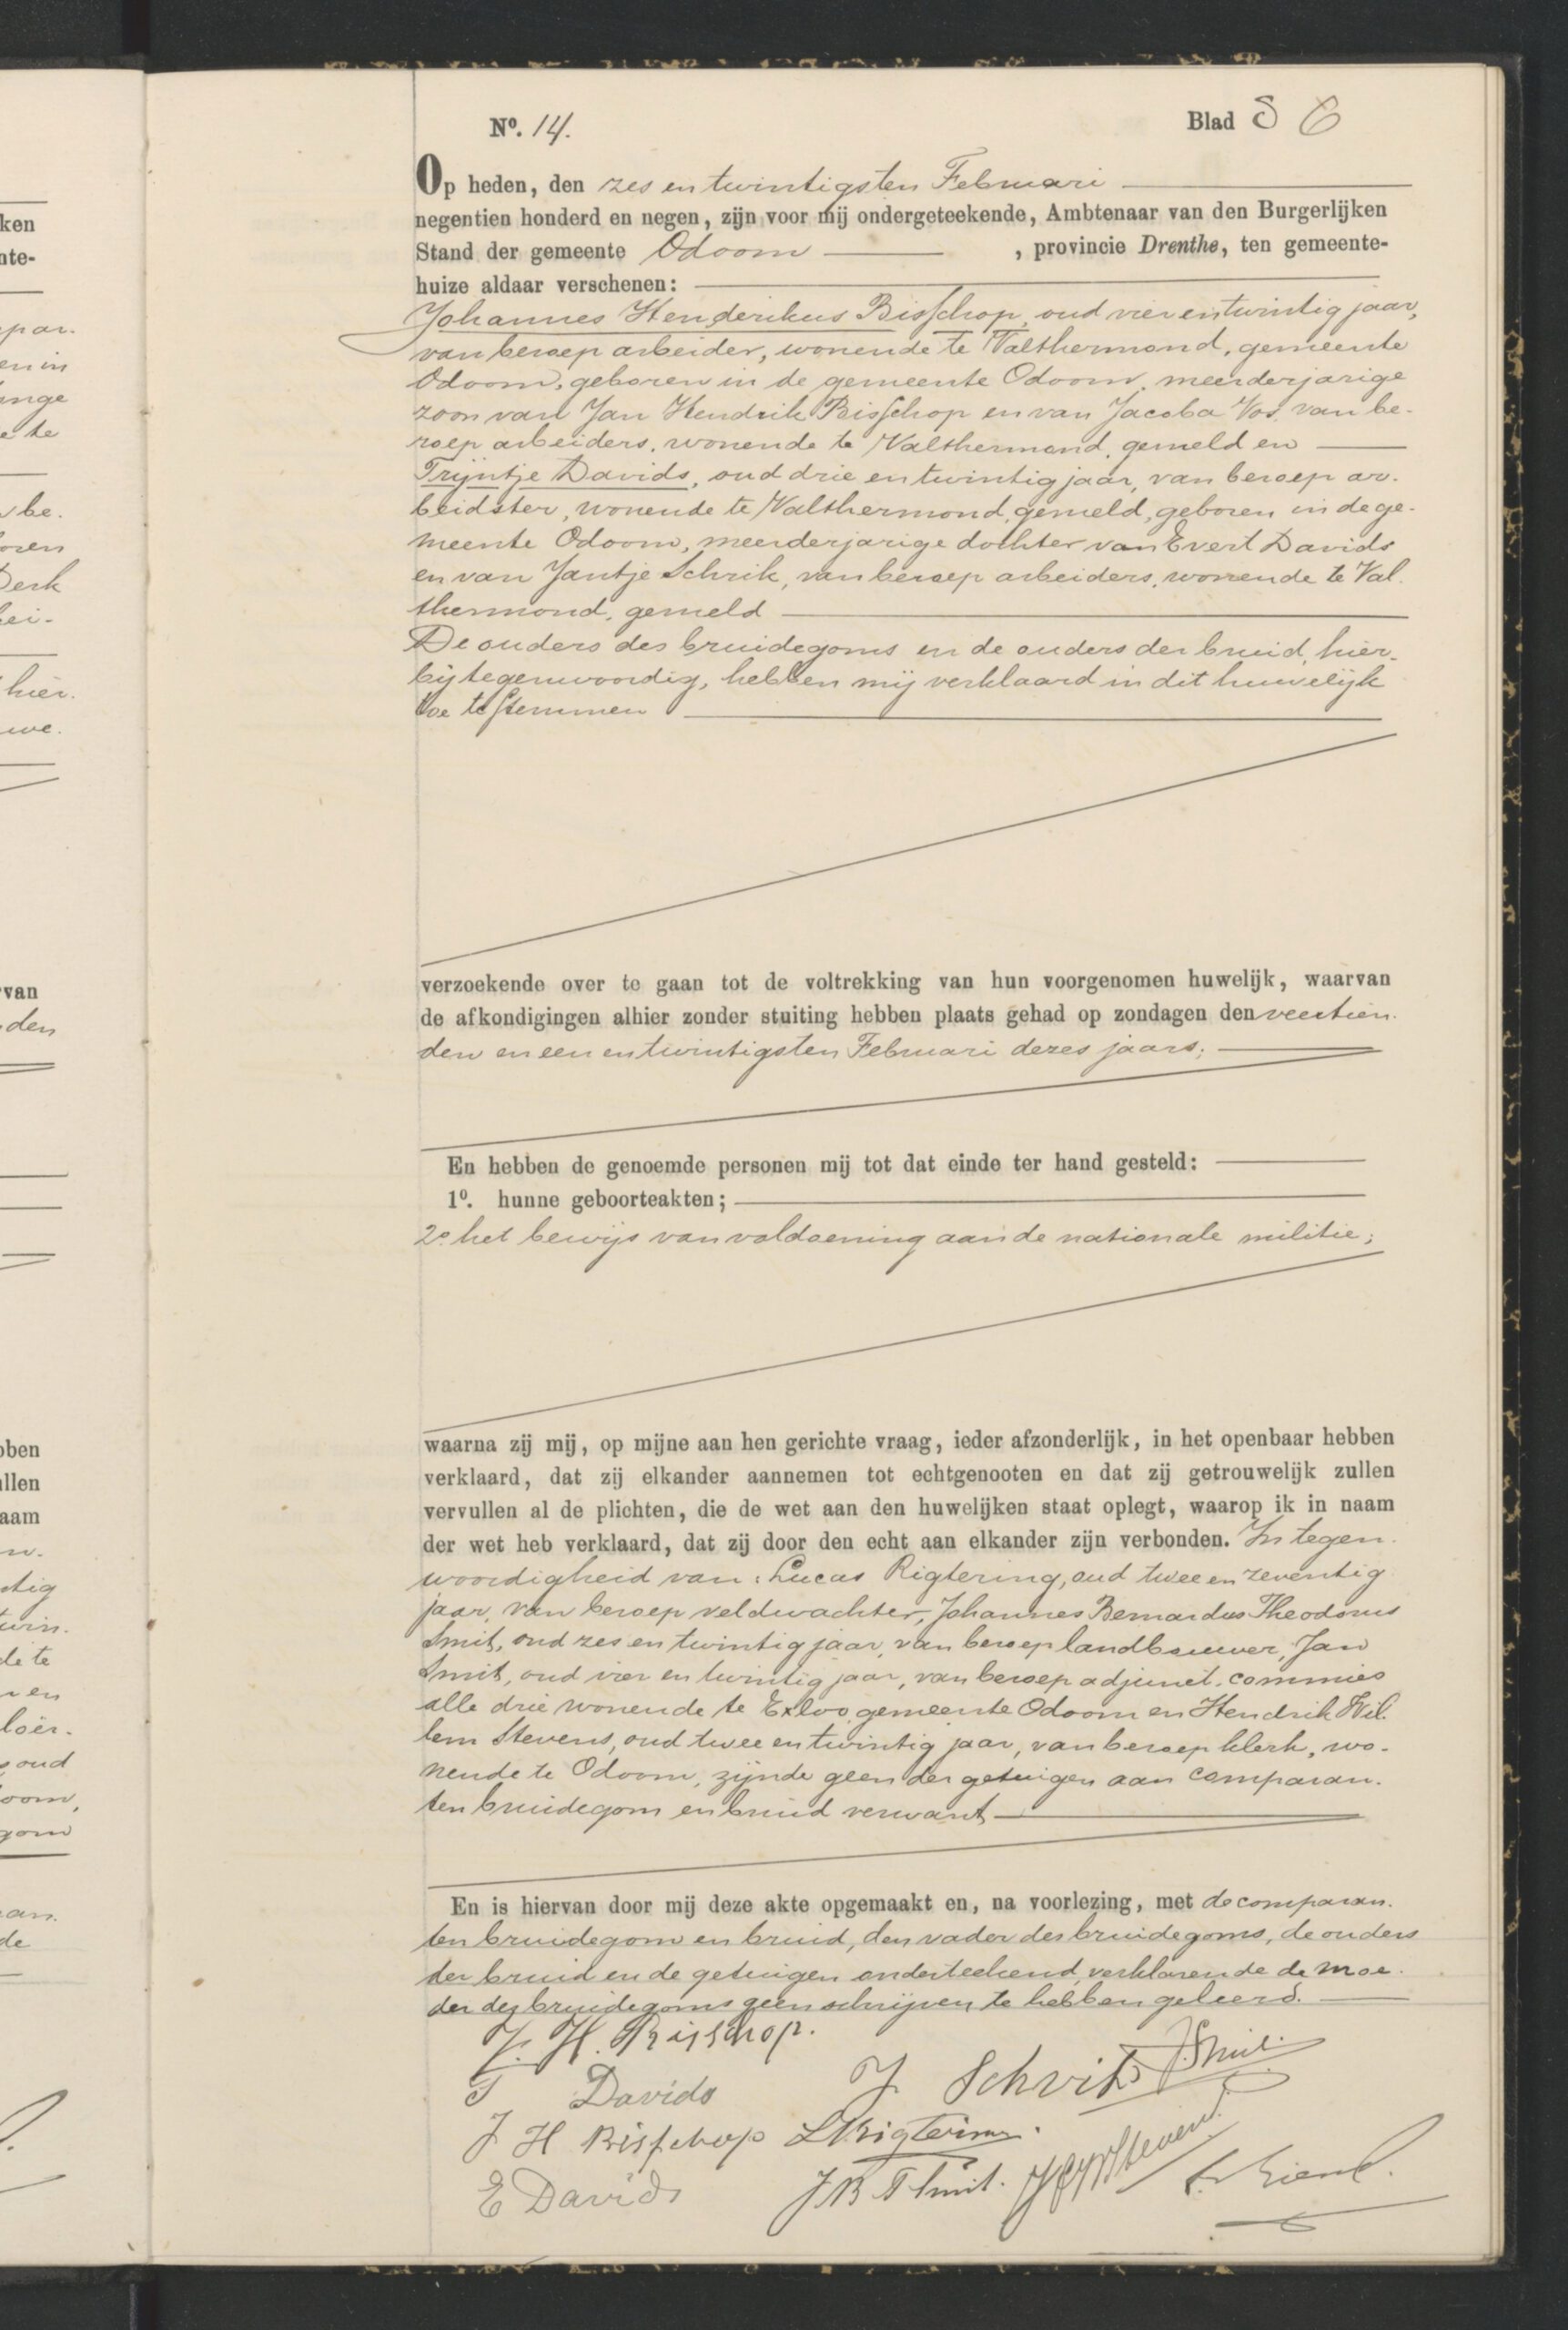 Nº. 14.
Blad 8
Op heden, den zes en twintigsten Februari
negentien honderd en negen, zijn voor mij ondergeteekende, Ambtenaar van den Burgerlijken
Stand der gemeente Odoorn , provincie Drenthe, ten gemeente-
huize aldaar verschenen:
Johannes Henderikus Bisschop, oud vier en twintig jaar,
van beroep arbeider, wonende te Valthermond, gemeente
Odoorn, geboren in de gemeente Odoorn, meerderjarige
zoon van Jan Hendrik Bisschop en van Jacoba Vos, van be-
roep arbeiders, wonende te Valthermond, gemeld en
Trijntje Davids, oud drie en twintig jaar, van beroep ar-
beidster, wonende te Valthermond, gemeld, geboren in de ge-
meente Odoorn, meerderjarige dochter van Evert Davids
en van Jantje Schrik, van beroep arbeiders, wonende te Val-
thermond, gemeld
De ouders des bruidegoms en de ouders der bruid, hier-
bij tegenwoordig, hebben mij verklaard in dit huwelijk
toe te stemmen
verzoekende over te gaan tot de voltrekking van hun voorgenomen huwelijk, waarvan
de afkondigingen alhier zonder stuiting hebben plaats gehad op zondagen den veertien-
den en een en twintigsten Februari dezes jaars;
En hebben de genoemde personen mij tot dat einde ter hand gesteld:
1º. hunne geboorteakten;
2º het bewijs van voldoening aan de nationale militie;
waarna zij mij, op mijne aan hen gerichte vraag, ieder afzonderlijk, in het openbaar hebben
verklaard, dat zij elkander aannemen tot echtgenooten en dat zij getrouwelijk zullen
vervullen al de plichten, die de wet aan den huwelijken staat oplegt, waarop ik in naam
der wet heb verklaard, dat zij door den echt aan elkander zijn verbonden. In tegen-
woordigheid van: Lucas Rigtering, oud twee en zeventig
jaar, van beroep veldwachter, Johannes Bernardus Theodorus
Smit, oud zes en twintig jaar, van beroep landbouwer, Jan
Smit, oud vier en twintig jaar, van beroep adjunct-commies
alle drie wonende te Exloo, gemeente Odoorn en Hendrik Wil-
lem Stevens, oud twee en twintig jaar, van beroep klerk, wo-
nende te Odoorn, zijnde geen der getuigen aan comparan-
ten bruidegom en bruid verwant
En is hiervan door mij deze akte opgemaakt en, na voorlezing, met de comparan-
ten bruidegom en bruid, den vader des bruidegoms, de ouders
der bruid en de getuigen onderteekend, verklarende de moe-
der des bruidegoms geen schrijven te hebben geleerd.
J. H. Bisschop.
J. Smit.
T Davids
J Schrik
J H Bisschop
L Rigtering.
H W Stevens
E Davids
J B T Smit.
ken
nte-
par-
en in
inge
e te
be-
oren
Derk
bei-
hier-
we-
van
den
bben
llen
aam
n-
ntig
twin-
de te
en
loër-
oud
oorn,
gom
an-
de